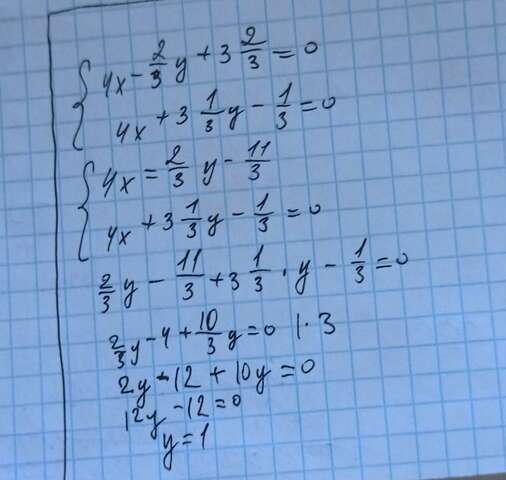 4x - 2/3 y + 3 2/3 = 0
4x + 3 1/3 y - 1/3 = 0
4x = 2/3 y - 11/3
4x + 3 1/3 y - 1/3 = 0
2/3 y - 11/3 + 3 1/3 · y - 1/3 = 0
2/3 y - 4 + 10/3 y = 0 | · 3
2y - 12 + 10y = 0
12y - 12 = 0
y = 1